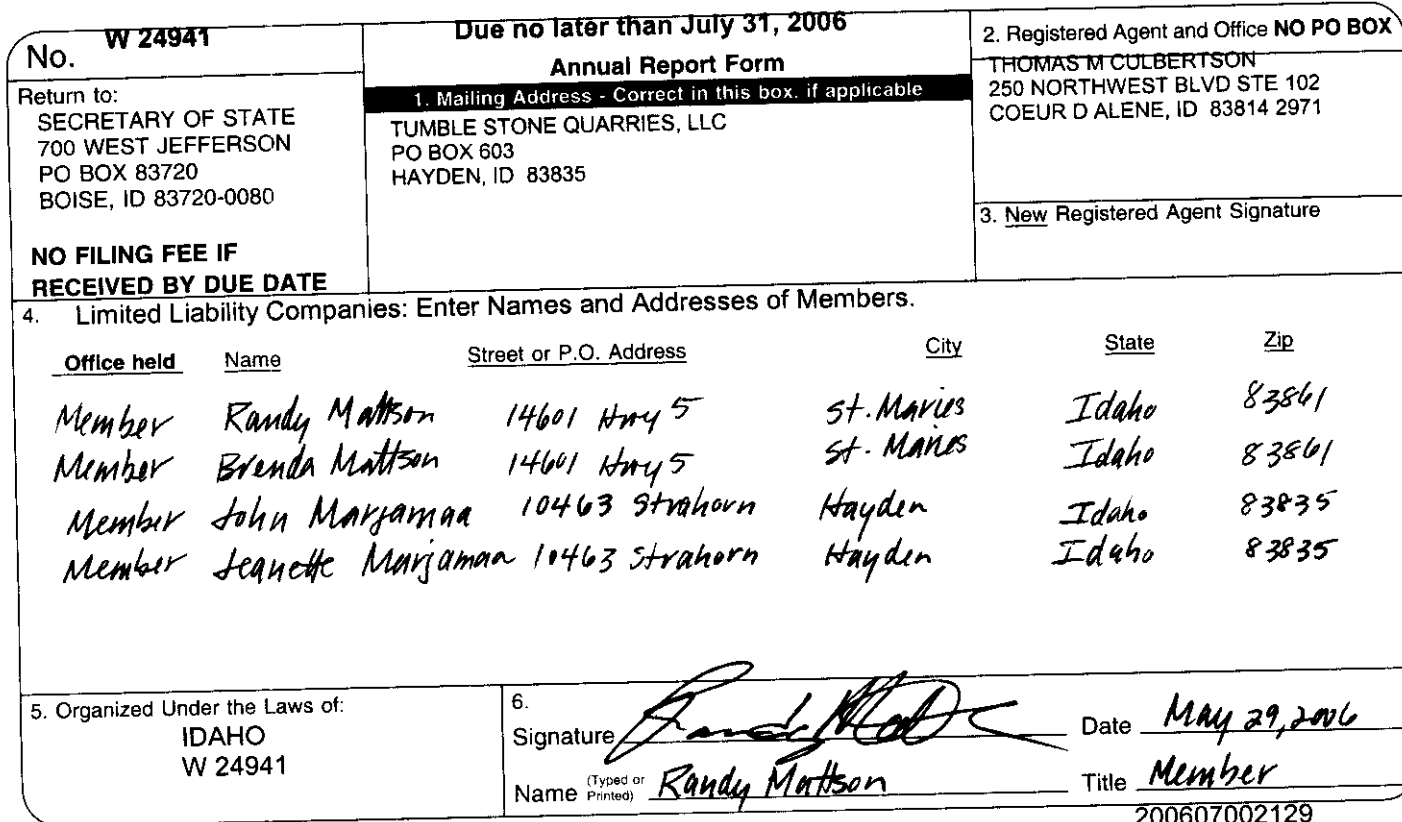 No. W 24941
Return to:
SECRETARY OF STATE
700 WEST JEFFERSON
PO BOX 83720
BOISE, ID 83720-0080
NO FILING FEE IF
RECEIVED BY DUE DATE
Due no later than July 31, 2006
Annual Report Form
1. Mailing Address - Correct in this box. if applicable
TUMBLE STONE QUARRIES, LLC
PO BOX 603
HAYDEN, ID 83835
2. Registered Agent and Office NO PO BOX
THOMAS M CULBERTSON
250 NORTHWEST BLVD STE 102
COEUR D ALENE, ID 83814 2971
3. New Registered Agent Signature
4. Limited Liability Companies: Enter Names and Addresses of Members.
Office held Name Street or P.O. Address City State Zip
Member Randy Mattson 14601 Hwy 5 St. Maries Idaho 83861
Member Brenda Mattson 14601 Hwy 5 St. Maries Idaho 83861
Member John Marjamaa 10463 Strahorn Hayden Idaho 83835
Member Jeanette Marjamaa 10463 Strahorn Hayden Idaho 83835
5. Organized Under the Laws of:
IDAHO
W 24941
6.
Signature Randy Mattson Date May 29, 2006
Name (Typed or Printed) Randy Mattson Title Member
200607002129